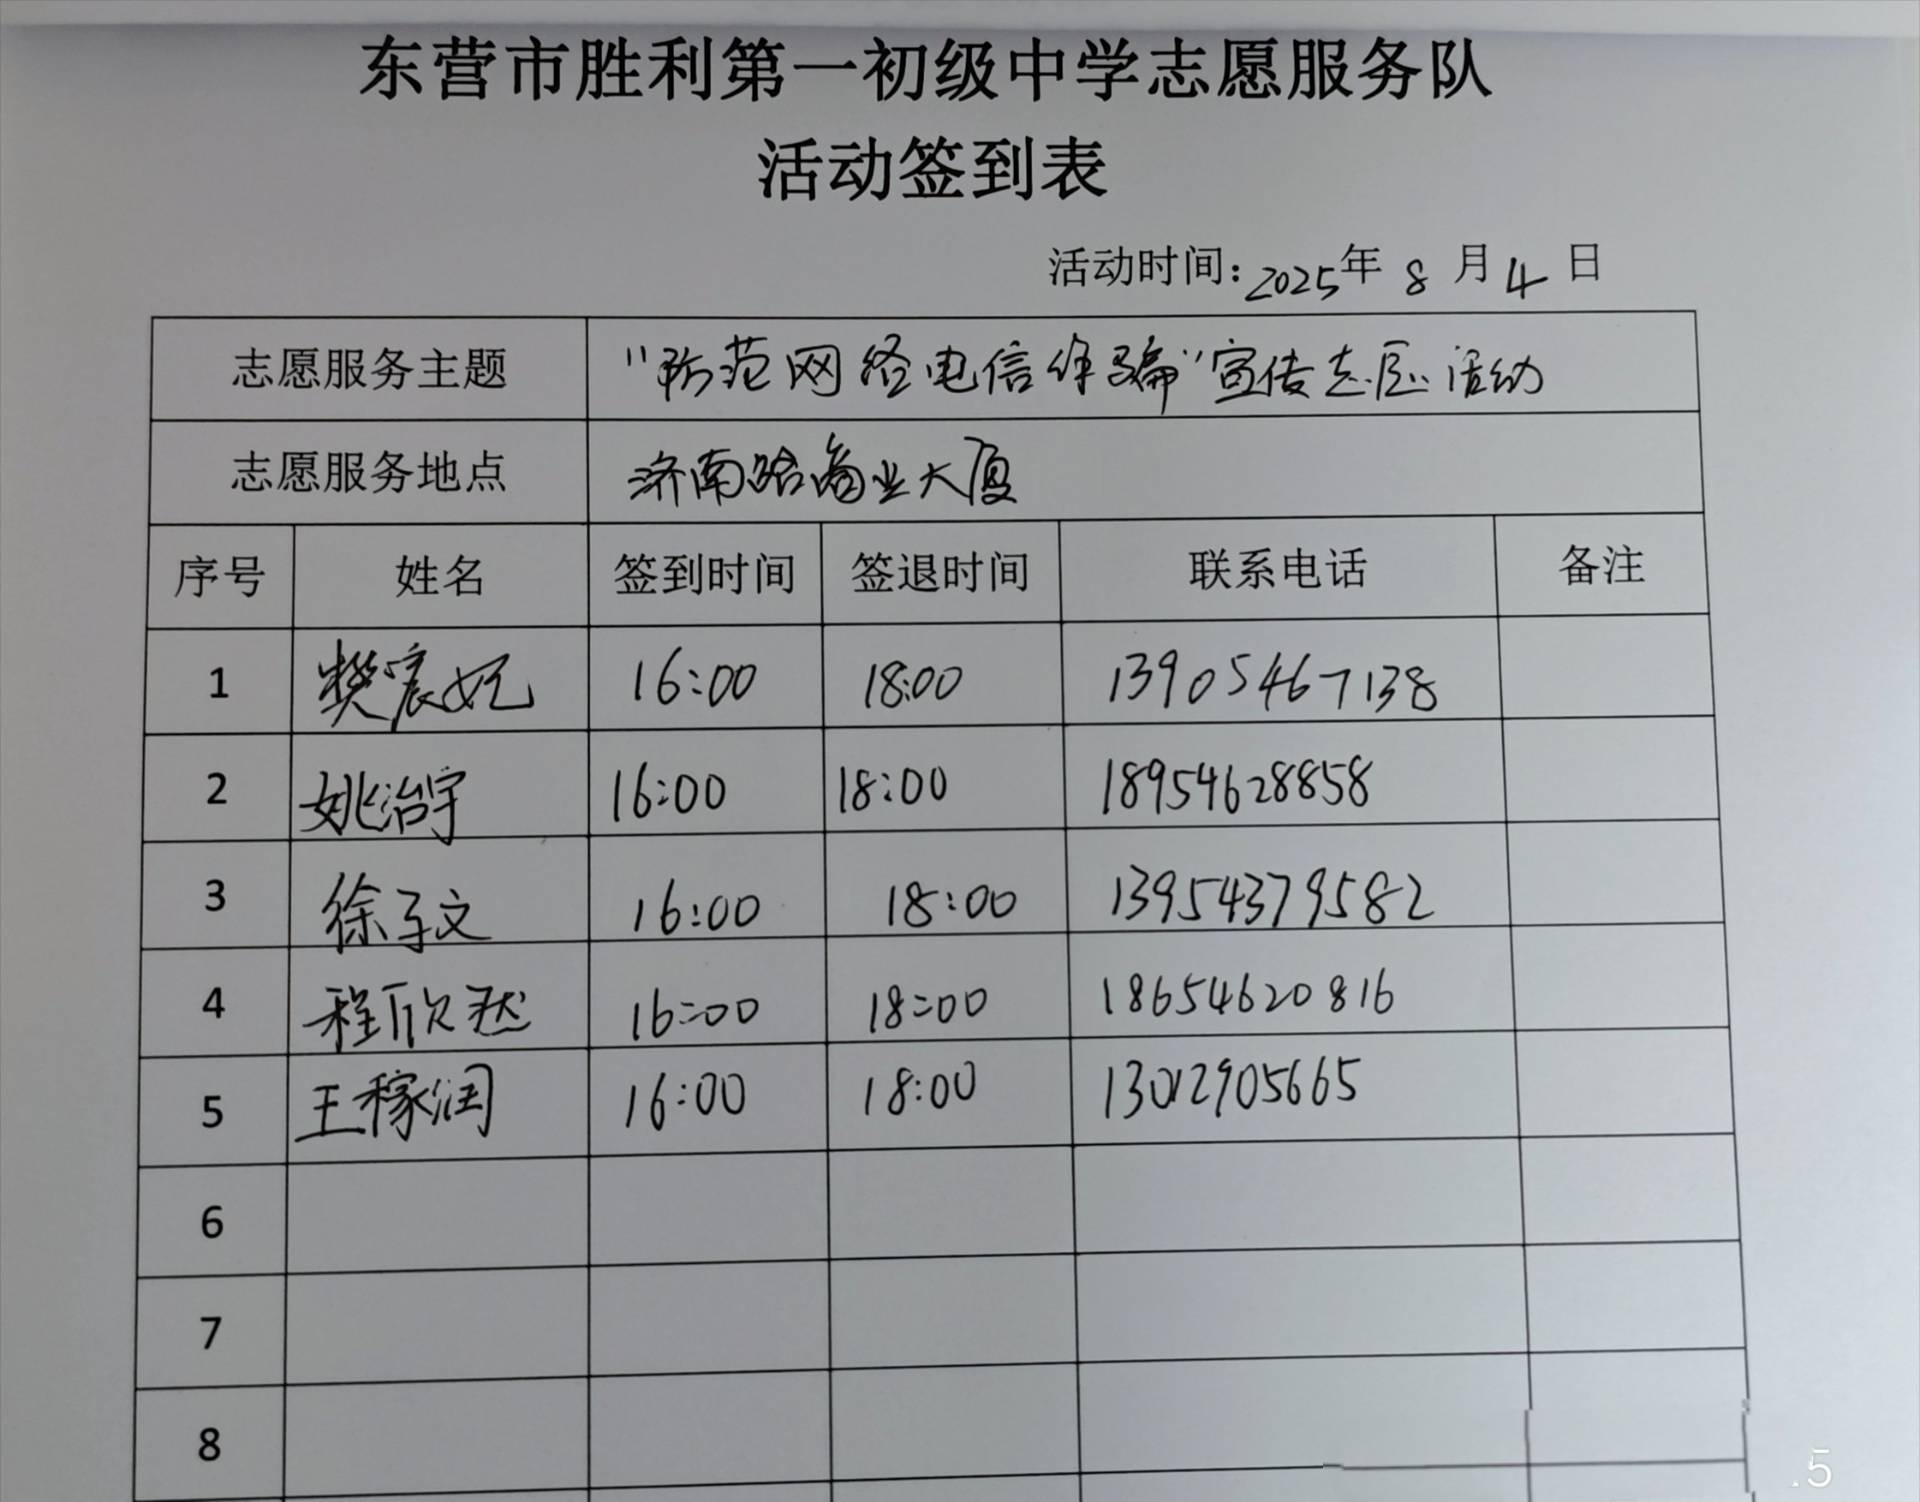 东营市胜利第一初级中学志愿服务队
活动签到表
活动时间:2025年 8 月 4 日
志愿服务主题 "防范网络电信诈骗"宣传志愿活动
志愿服务地点 济南路商业大厦
序号 姓名 签到时间 签退时间 联系电话 备注
1 樊宸妃 16:00 18:00 13905467138
2 姚治宇 16:00 18:00 18954628858
3 徐子文 16:00 18:00 13954379582
4 程欣然 16:00 18:00 18654620816
5 王稼润 16:00 18:00 13012905665
6
7
8
.5